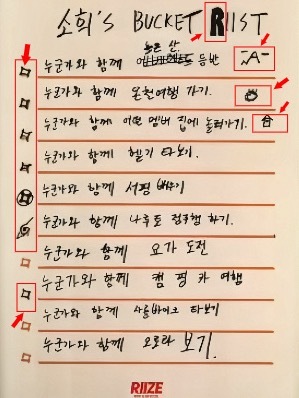 소희's BUCKET RIIST
누구가와 함께 높은 산 등반 -A-
누군가와 함께 온천여행 가기.
누군가와 함께 어떤 멤버 집에 놀러가기.
누군가와 함께 헬기 타보기.
누군가와 함께 서핑 배우기
누군가와 함께 나루토 정주행 하기.
누군가와 함께 요가 도전
누군가와 함께 캠핑카 여행
누군가와 함께 사륜바이크 타보기
누군가와 함께 오로라 보기.
RIIZE